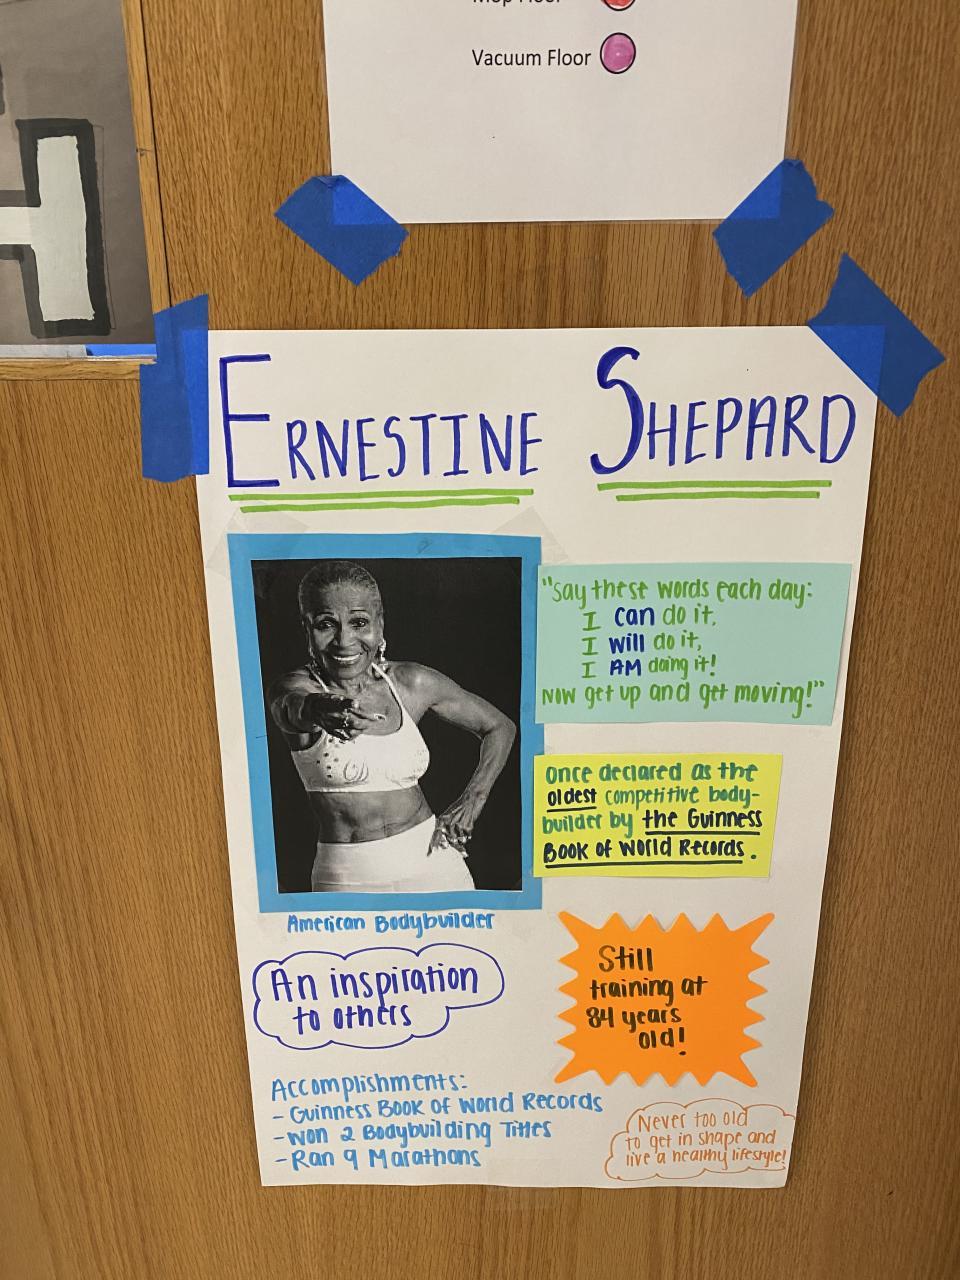 Mop Floor
Vacuum Floor
ERNESTINE SHEPARD
"Say these words each day:
I can do it,
I will do it,
I AM doing it!
NOW get up and get moving!"
Once declared as the
oldest competitive body-
builder by the Guinness
Book of World Records.
American Bodybuilder
An inspiration
to others
Still
training at
84 years
old!
Accomplishments:
- Guinness Book of World Records
- Won 2 Bodybuilding Titles
- Ran 9 Marathons
Never too old
to get in shape and
live a healthy lifestyle!